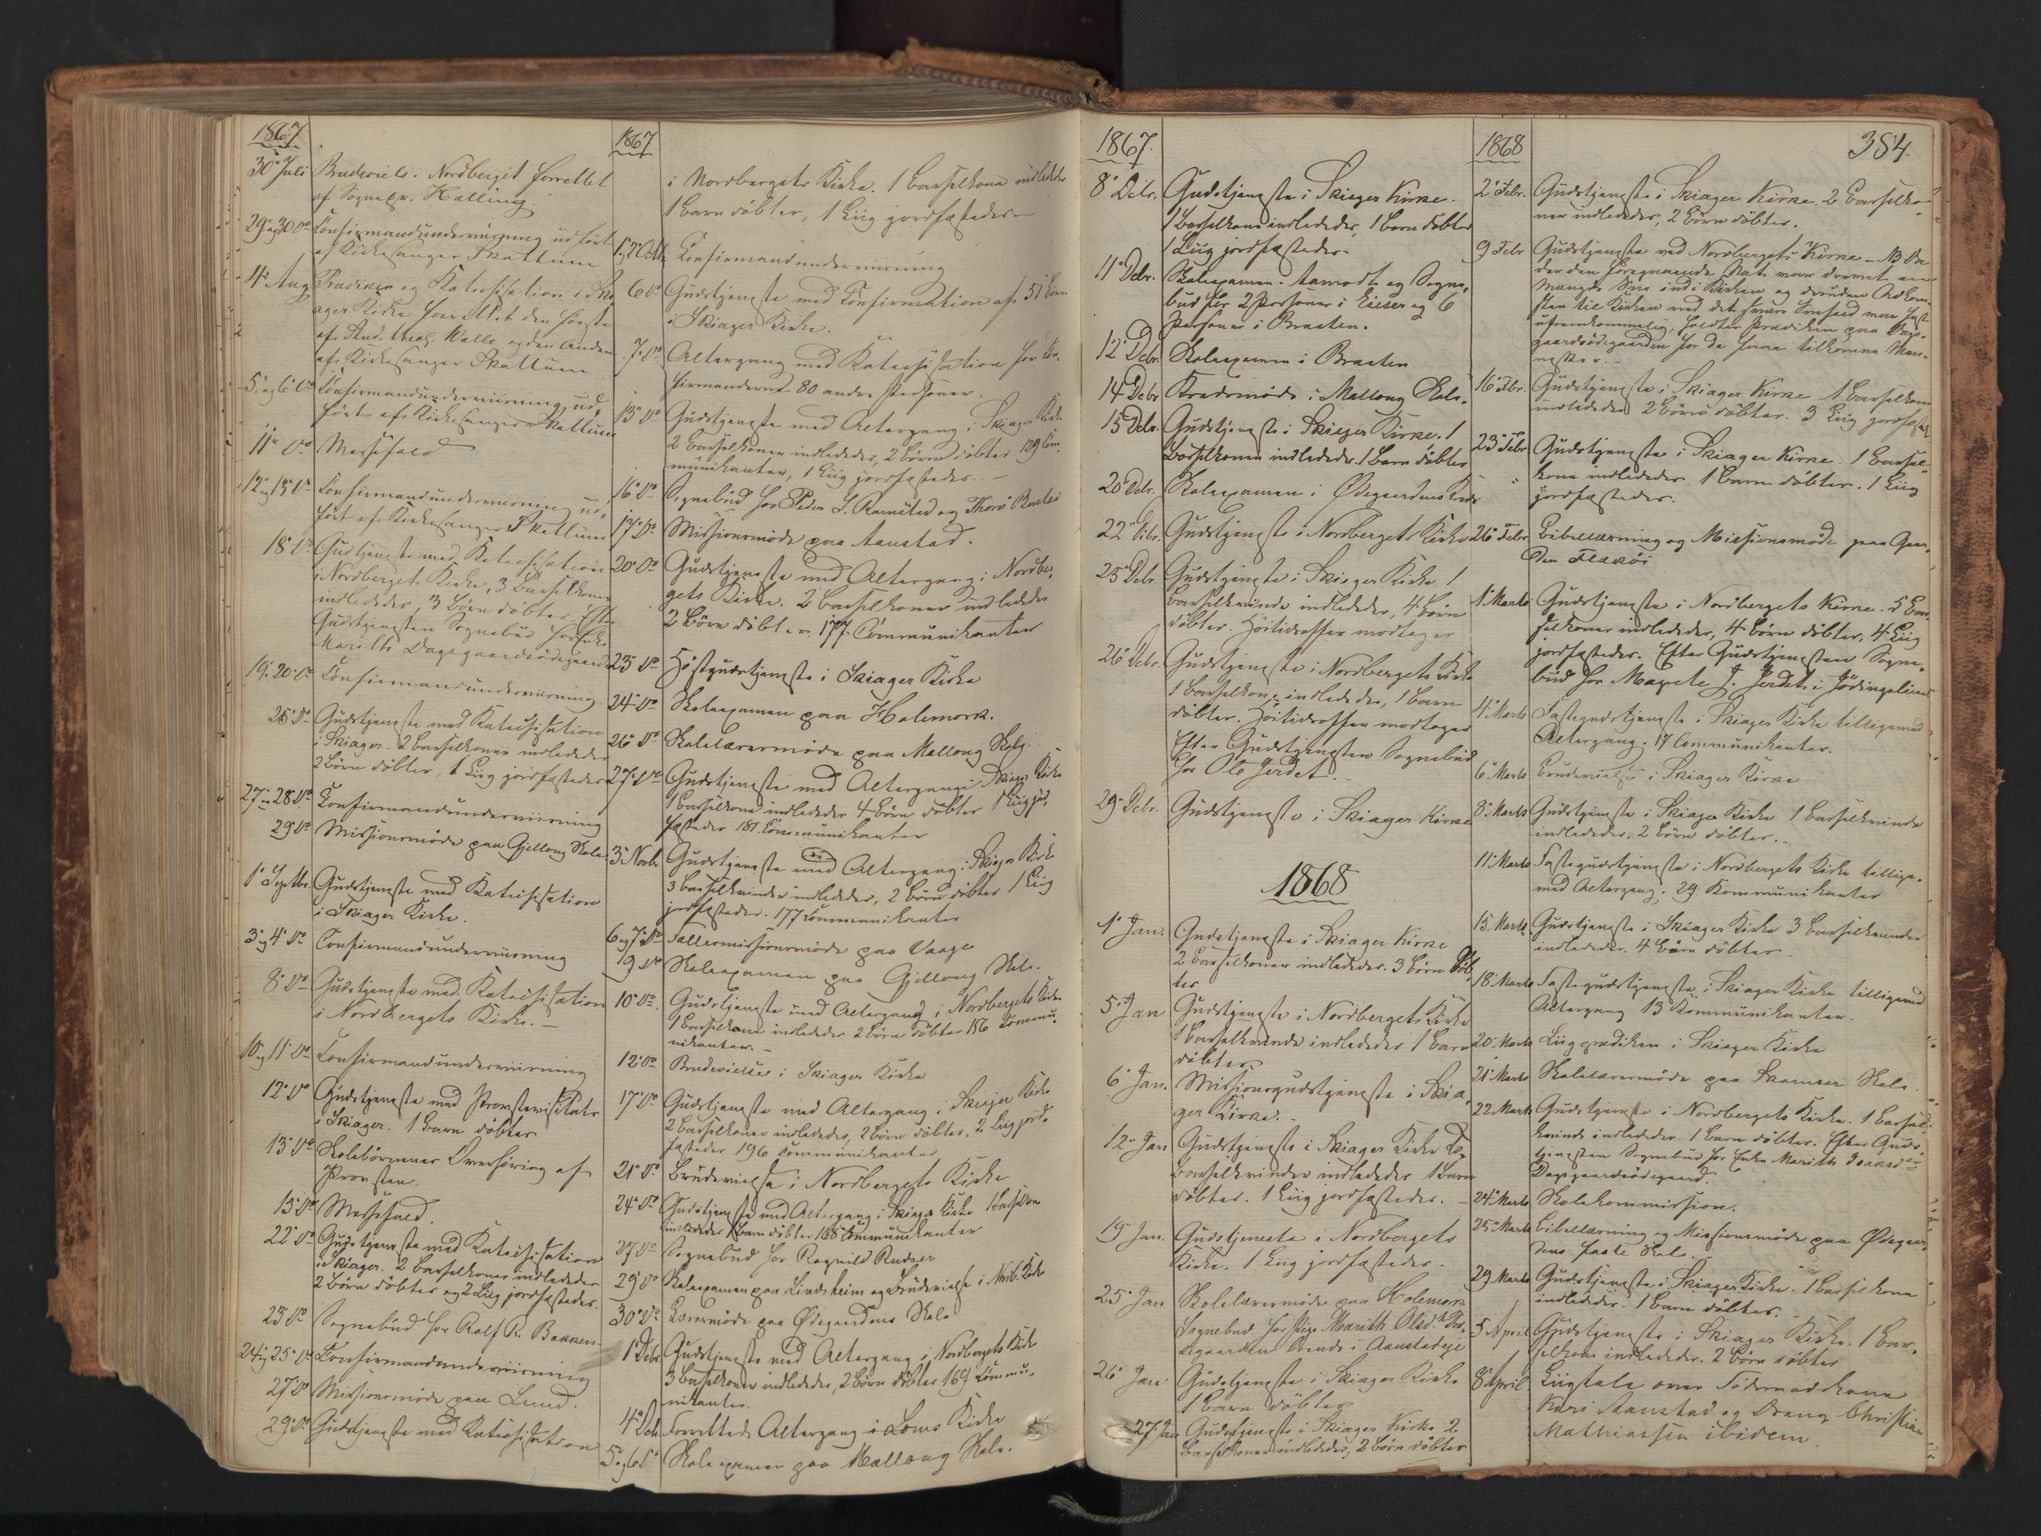 1867
30' Juli Brudevielse. Nordberget forrettet
af Sognepr. Halling.
29' og 30' Do Confirmandunderviisning udført
af Kirkesanger Skattum
4' Aug Prædiken og Katechisation i Ski-
ager Kirke forrettet den første
af Stud. theol. Walle og den Anden
af Kirkesanger Skattum
5' og 6' Do Confirmandunderviisning ud-
ført af Kirkesanger Skattum
11' Do Messefald
12' og 13' Do Confirmandunderviisning ud-
ført af Kirkesanger Skattum
18' Do Gudstjeneste med Katechisation
i Nordbergets Kirke, 3 Barselkoner
indledede, 3 Børn døbte. Efter
Gudstjenesten Sognebud hos
Marith Dagsgaardsødegaard
19' 20' Do Confirmandunderviisning
25' Do Gudstjeneste med Katechisation
i Skiager. 2 Barselkoner indledede
2 Børn døbte, 1 Liig jordfæstedes
27' 28' Do Confirmandunderviisning
29' Do Missionsmøde paa Gjellong Skole
1' Septbr. Gudstjeneste med Katechisation
i Skiager Kirke.
3' og 4' Do Confirmandunderviisning
8' Do Gudstjeneste med Katechisation
i Nordbergets Kirke. —
10' og 11' Do Confirmandunderviisning
12' Do Gudstjeneste med Provstevisitats
i Skiager. 1 Barn døbtes
13' Do Skolebørnenes Overhøring af
Provsten.
15' Do Messefald.
22' Do Gudstjeneste med Katechisation
i Skiager. 2 Barselkoner indledede
2 Børn døbte og 2 Liig jordfæstedes.
23' Do Sognebud hos Rolf R. Bakken
24' og 25' Do Confirmandunderviisning
27' Do Missionsmøde paa Lund.
29' Do Gudstjeneste med Katechisation
1867
i Nordbergets Kirke. 1 Barselkone indlededes
1 Barn døbtes, 1 Liig jordfæstedes —
1' og 2' Octb. Confirmandunderviisning
6' Do Gudstjeneste med Confirmation af 51 Børn
i Skiager Kirke.
7' Do Altergang med Katechisation for Con-
firmanderne 80 andre Personer.
13' Do Gudstjeneste med Altergang i Skiager Kirke
2 Barselkoner indledede, 2 Børn døbte 129 Com-
munikanter, 1 Liig jordfæstedes. —
16' Do Sognebud hos Peder S. Ramstad og Thore
17' Do Missionsmøde paa Aanstad.
20' Do Gudstjeneste med Altergang i Nordber-
gets Kirke. 2 Barselkoner indledede
2 Børn døbte. 177 Communikanter
23' Do Høstgudstjeneste i Skiager Kirke
24' Do Skoleexamen paa Holemork.
26' Do Skolelærermøde paa Mallong Skole.
27' Do Gudstjeneste med Altergang i Skiager Kirke
1 Barselkone indlededes 4 Børn døbte 1 Liig jord-
fæstedes 181 Communikanter
3' Novbr. Gudstjeneste med Altergang i Skiager Kirke
3 Barselkvinder indledede, 2 Børn døbte 1 Liig
jordfæstedes. 177 Communikanter
6' og 7' Do Fællesmissionsmøde paa Vaage
9' Do Skoleexamen paa Gjellong Skole.
10' Do Gudstjeneste med Altergang i Nordbergets Kirke
1 Barselkone indlededes 2 Børn døbte 156 Commu-
nikanter. —
12' Do Brudevielse i Skiager Kirke
17' Do Gudstjeneste med Altergang i Skiager Kirke
2 Barselkoner indledede, 2 Børn døbte, 2 Liig jord-
fæstedes 196 Communikanter
21' Do Brudevielse i Nordbergets Kirke
24' Do Gudstjeneste med Altergang i Skiager Kirke 1 Barselkone
indlededes 1 Barn døbtes 168 Communikanter
27' Do Sognebud hos Ragnild Rudser
29' Do Skoleexamen paa Lindsheim og Brudevielse i Nordb. Kirke
30' Do Lærermøde paa Ødegaardens Skole
1' Debr. Gudstjeneste med Altergang i Nordbergets Kirke
3 Barselkoner indledede, 2 Børn døbte 169 Commu-
nikanter.
4' Debr. Forrettede Altergang i Loms Kirke
5' og 6' Do Skoleexamen paa Mallong Skole.
1867.
8' Debr. Gudstjeneste i Skiager Kirke.
1 Barselkone indlededes, 1 Barn døbtes
1 Liig jordfæstedes.
11' Debr. Skoleexamen. Aamodt og Sogne-
bud for 2 Personer i Lider og 6
Personer i Braaten.
12' Debr. Skoleexamen i Braaten
14 Debr Kredsmøde i Mallong Skole.
15 Debr. Gudstjeneste i Skiager Kirke. 1
Barselkone indlededes. 1 Barn døbtes
20' Debr. Skoleexamen i Ødegaardens Kreds
22' Debr. Gudstjeneste i Nordbergets Kirke
25' Debr Gudstjeneste i Skiager Kirke 1
Barselkvinde indlededes, 4 Børn
døbte. Høitidsoffer modtages
26' Debr. Gudstjeneste i Nordbergets Kirke
1 Barselkone indlededes, 1 Barn
døbtes. Høitidsoffer modtages
Efter Gudstjenesten Sognebud
for Ole Jerdet. —
29' Debr. Gudstjeneste i Skiager Kirke
1868
1' Jan. Gudstjeneste i Skiager Kirke
2 Barselkoner indledede. 3 Børn døb-
tes
5' Jan Gudstjeneste i Nordbergets Kirke
1 Barselkvinde indlededes 1 Barn
døbtes
6' Jan. Missionsgudstjeneste i Skia-
ger Kirke. —
12' Jan Gudstjeneste i Skiager Kirke 2
Barselkvinder indledede 1 Barn
døbtes. 1 Liig jordfæstedes. —
19' Jan. Gudstjeneste i Nordbergets
Kirke. 1 Liig jordfæstedes.
25' Jan Skolelærermøde paa Holemork
Sognebud hos Pige Marith Olsdtr
boende i Aanstadeje
26' Jan Gudstjeneste i Skiager Kirke
1 Barn døbtes
27' Jan Gudstjeneste i Skiager Kirke 2
Barselkoner indledede, 2 Børn døbte
1868 384.
2' Febr. Gudstjeneste i Skiager Kirke. 2 Barselko-
ner indledede, 2 Børn døbte.
9' Febr Gudstjeneste ved Nordbergets Kirke — NB Da
der den foregaaende Nat var drevet en
Mængde Sne ind i Kirken og desuden Adkom-
sten til Kirken ved det svære Snefald var fast
ufremkommelig, holdtes Prædiken paa Dags-
gaardsødegaarden for de faae tilkomne Men-
nesker. —
16' Febr. Gudstjeneste i Skiager Kirke 1 Barselkone
indlededes 2 Børn døbte. 3 Liig jordfæst.
23' Febr Gudstjeneste i Skiager Kirke. 1 Barsel-
kone indlededes. 1 Barn døbtes. 1 Liig
jordfæstedes.
26' Febr Bibellæsning og Missionsmøde paa Gaar-
den Flækøi
1' Marts Gudstjeneste i Nordbergets Kirke. 5 Bar-
selkoner indledede, 4 Børn døbte, 4 Liig
jordfæstedes. Efter Gudstjenesten Sogne-
bud hos Magrete J. Jerdet i Jødingslien
4' Marts Fastegudstjeneste i Skiager Kirke tilligemed
Altergang. 17 Communikanter.
6' Marts Brudevielse i Skiager Kirke
8' Marts Gudstjeneste i Skiager Kirke 1 Barselkvinde
indlededes, 2 Børn døbte. —
11' Marts Fastegudstjeneste i Nordbergets Kirke tillige-
med Altergang. 29 Kommunikanter
15 Marts Gudstjeneste i Skiager Kirke 3 Barselkvinder
indledede. 4 Børn døbte.
18' Marts Fastegudstjeneste i Skiager Kirke tilligemed
Altergang 13 Kommunikanter.
20' Marts Liigprædiken i Skiager Kirke
21' Marts Skolelærermøde paa Skamser Skole.
22 Marts Gudstjeneste i Nordbergets Kirke. 1 Barsel-
kvinde indlededes. 1 Barn døbtes. Efter Guds-
tjenesten Sognebud hos Enke Marith
Dagsgaardsødegaard.
24' Marts Skolekommission.
25' Marts Bibellæsning og Missionsmøde paa Ødegaar-
dens faste Skole.
29 Marts Gudstjeneste i Skiager Kirke. 1 Barselkone
indlededes. 1 Barn døbtes.
5 April Gudstjeneste i Skiager Kirke. 1 Bar-
selkone indlededes. 2 Børn døbte
8' April Liigtale over Jødermoderkone
Kari Aanstad og Dreng Christian
Mathiassen ibidem.